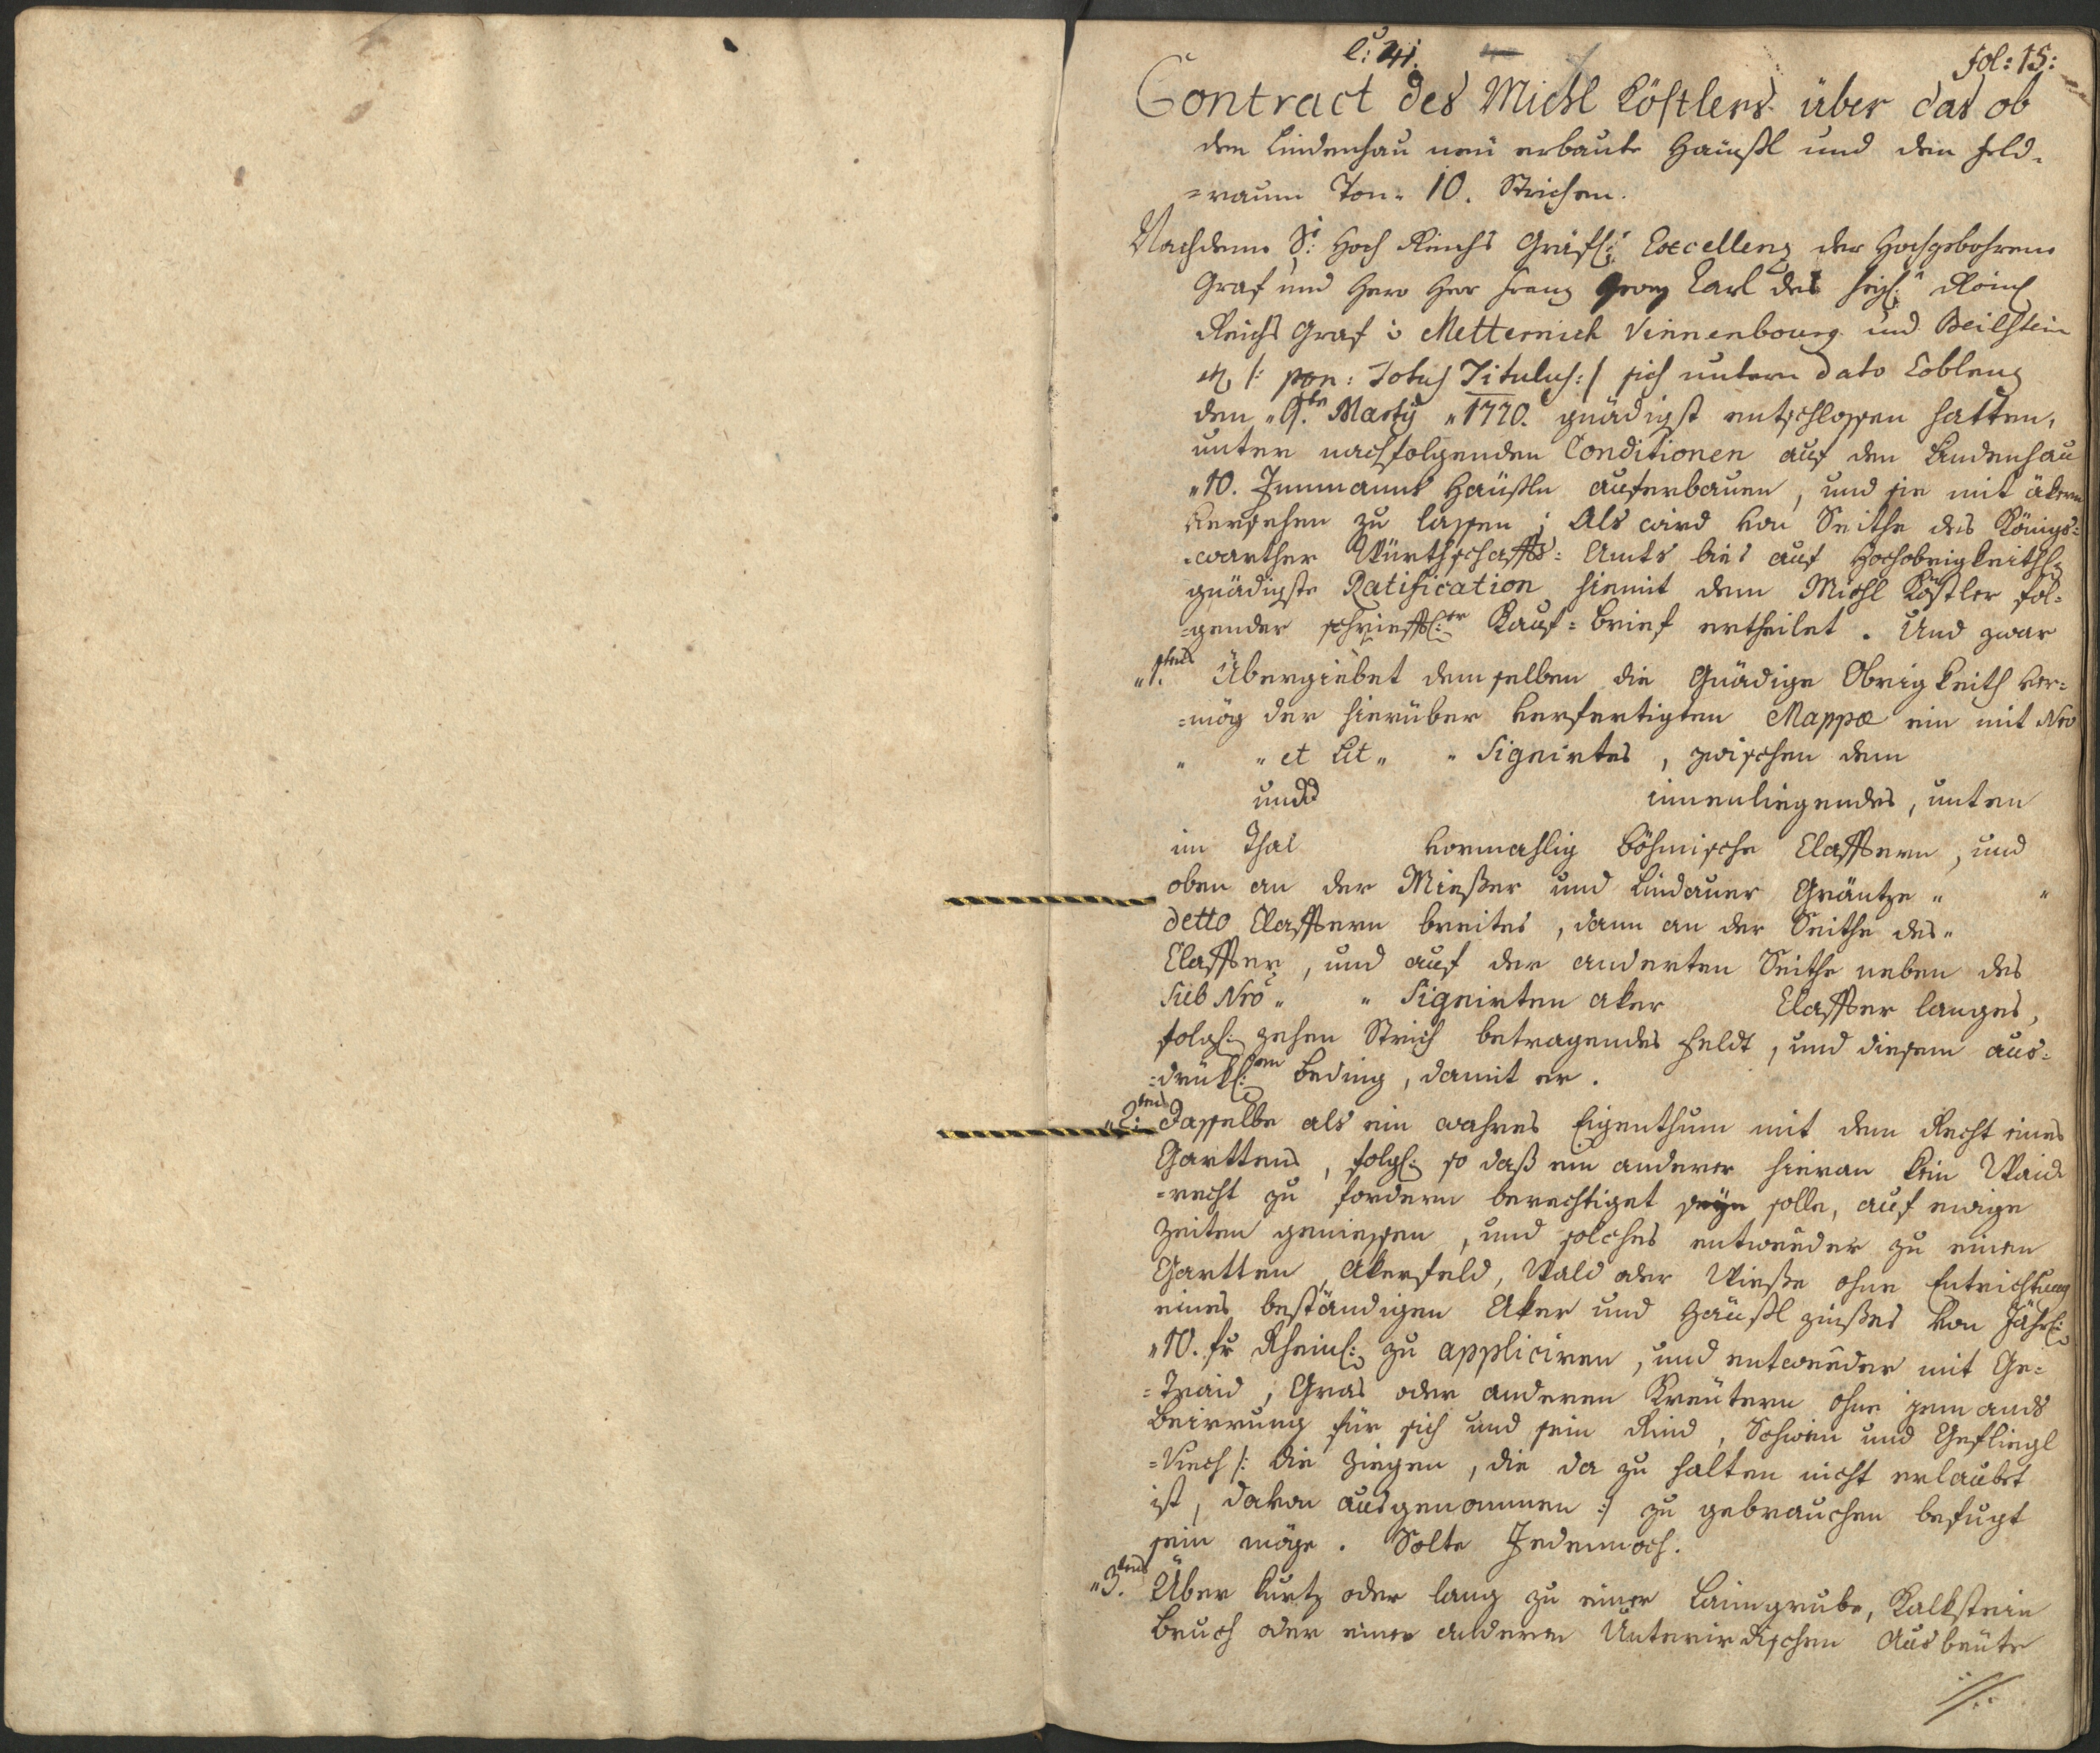 C: 41.
fol: 15:
Contract des Michl Köstlers über das ob
dem Lindenhau neü erbaute Haüßl und den Feld-
=raum Von „ 10. Strichen.
Nachdeme Sr: Hoch Reichs Gräfl: Excellenz der Hochgebohrene
Graf und Herr Herr Franz Georg Carl des heyl: Röm:
Reichs Graf v Metternich Vinnenbourg und Beilstein
/: Totus Titulus :/ sich untern Dato Coblenz
den „ 9.ten Marty „ 1770. gnädigst entschlossen hatten,
unter nachfolgenden Conditionen auf den Lindenhau
„ 10. Innmanns Haüßln auferbauen, und sie mit äkern
versehen zu lassen; Als wird von Seithe des Königs=
=warther Würthschaffts=Amts bies auf Hochobrigkeithl:
gnädigste Ratification hiemit dem Michl Köstler fol=
=gender schriefftl:er Kauf=brief ertheilet. Und zwar
„ 1.tens Übergiebet demselben die Gnädige Obrigkeith ver=
=mög der hierüber verfertigten Mappæ ein mit Nro
„ „ et Lit „ „ Signirtes, zwischen dem
und innenliegendes, unten
im Thal vormahlig böhmische Clafftern, und
oben an der Mießer und Lindauer Gräntze „ „
detto Clafftern breites, dann an der Seithe des „
Claffter, und auf der anderten Seithe neben des
Sub Nro „ „ Signirten aker Claffter langes,
folgl: zehen Strich betragendes Feldt, und diesem aus=
=drükl:en Beding, damit er.
„ 2.tens Dasselbe als ein wahres Eigenthum mit dem Recht eines
Garttens, folgl: so daß ein anderer hieran kein Waid
=recht zu fordern berechtiget seyn solle, auf ewige
Zeiten geniessen, und solches entweder zu einen
Gartten, Akerfeld, Wald oder Wieße ohne Entrichtung
eines beständigen Aker und Haüßl zinßes von Jährl:
„ 10. fr Rheinl: zu appliciren, und entweder mit Ge=
=Traid, Gras oder anderen Kreütern ohne jemands
Beirrung für sich und sein Rind, Schwein und Gefliegl
=Viech /: die Ziegen, die da zu halten nicht erlaubet
ist, davon ausgenommen :/ zu gebrauchen befugt
sein möge. Solte Jedennoch.
„ 3.tens Über kurtz oder lang zu einer Laimgrube, Kalkstein
bruch oder einer anderen Unterirdischen Ausbeüte